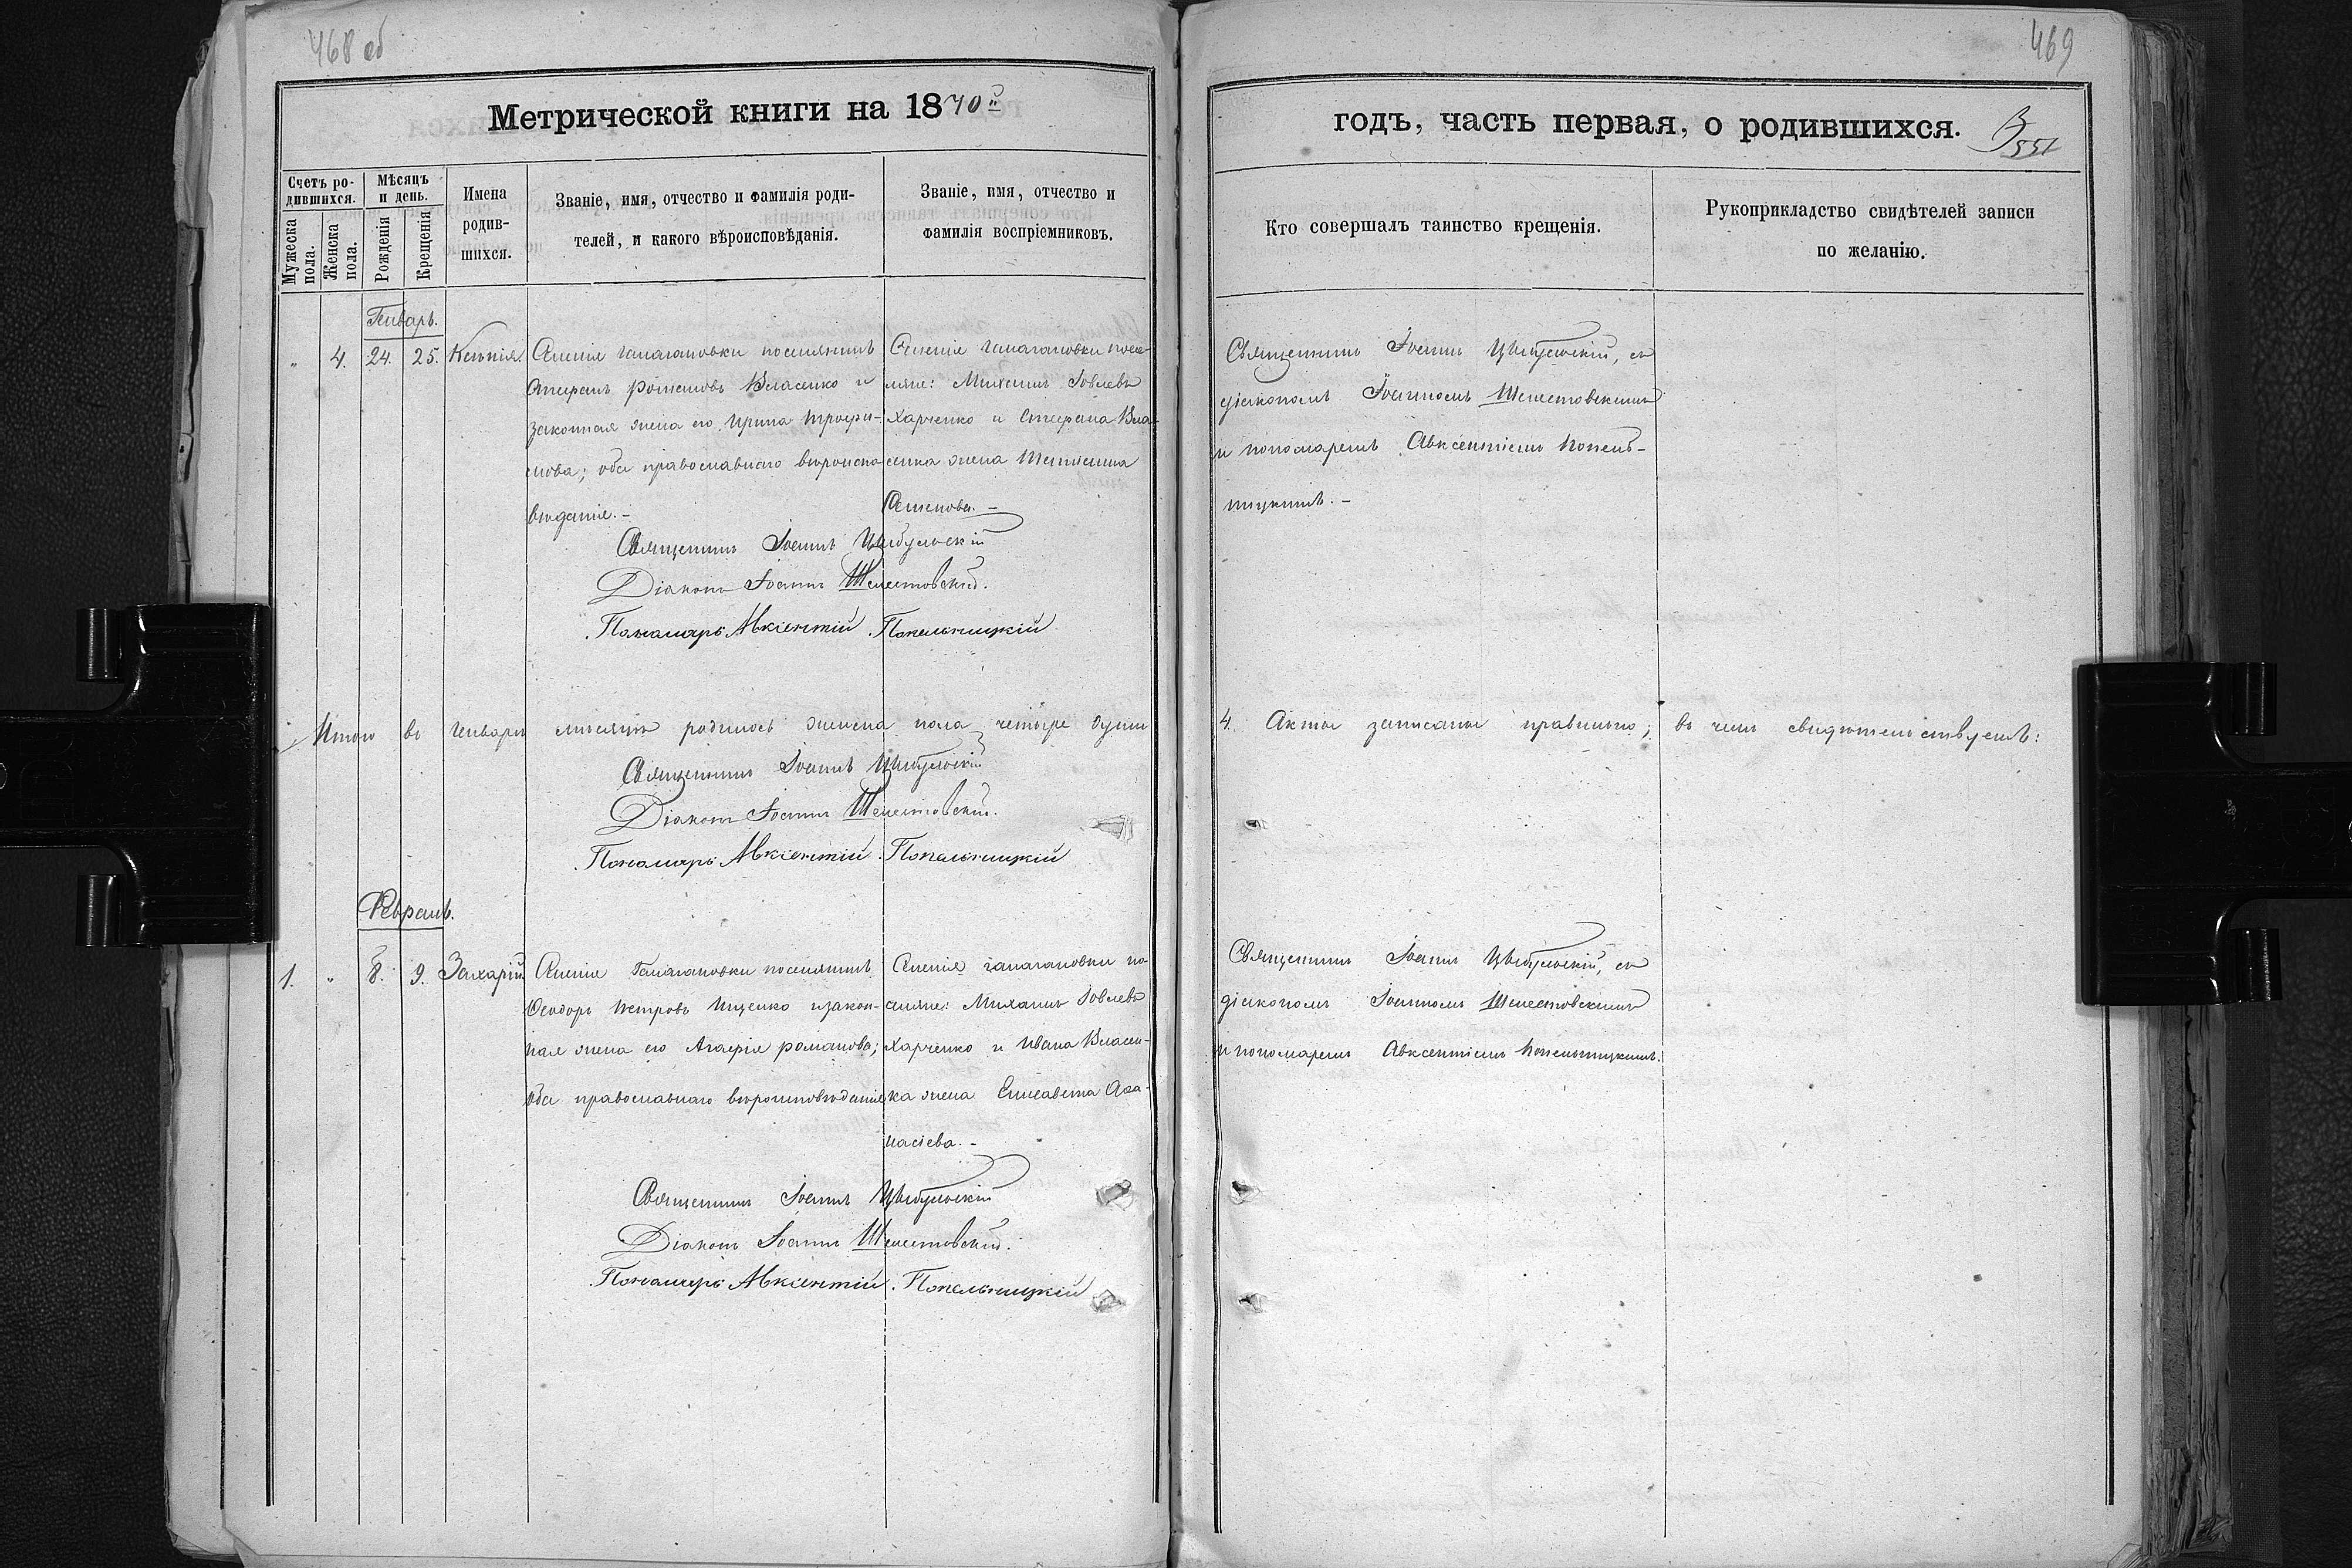 468 об
469
Метрической книги на 1870й
годъ, часть первая, о родившихся.
551
Счетъ родившихся.
Мѣсяцъ и день.
Мужеска пола.
Женска пола.
Рожденія
Крещенія
Имена родившихся.
Званіе, имя, отчество и фамилія родителей, и какого вѣроисповѣданія.
Званіе, имя, отчество и фамилія воспріемниковъ.
Кто совершалъ таинство крещенія.
Рукоприкладство свидѣтелей записи
по желанію.
Генварь.
" 4. 24. 25. Ксенія
Селенія Галагановки поселянинъ
Стефанъ Романовъ Власенко и
законная жена его Ирина Трофи-
мова; оба православнаго вѣроиспо-
вѣданія.-
Селенія Галагановки посе-
ляне: Михаилъ Іовлевъ
Харченко и Стефана Вла-
сенка жена
Семенова.-
Священникъ Іоаннъ Цыбульскій, съ
діакономъ Іоанномъ Шелестовскимъ
и пономаремъ Авксентіемъ Попель-
ницкимъ.-
Священникъ Іоаннъ Цыбульскій
Діаконъ Іоаннъ Шелестовскій.
Пономарь Авксентій Попельницкій
Итого въ Генварѣ мѣсяцѣ родилось женска пола четыре души
4. Акты записаны правильно; въ чемъ свидѣтельствуемъ:
Священникъ Іоаннъ Цыбульскій
Діаконъ Іоаннъ Шелестовскій.
Пономарь Авксентій Попельницкій
Февраль.
1. " 8. 9. Захарій
Селенія Галагановки поселянинъ
Ѳеодоръ Петровъ Ищенко и закон-
ная жена его Агафія Романова;
оба православнаго вѣроисповѣданія
Селенія Галагановки по-
селяне: Михаилъ Іовлевъ
Харченко и Ивана Власен-
ка жена Елисавета Аѳа-
насіева.-
Священникъ Іоаннъ Цыбульскій, съ
діакономъ Іоанномъ Шелестовскимъ
и пономаремъ Авксентіемъ Попельницкимъ.
Священникъ Іоаннъ Цыбульскій
Діаконъ Іоаннъ Шелестовскій.
Пономарь Авксентій Попельницкій